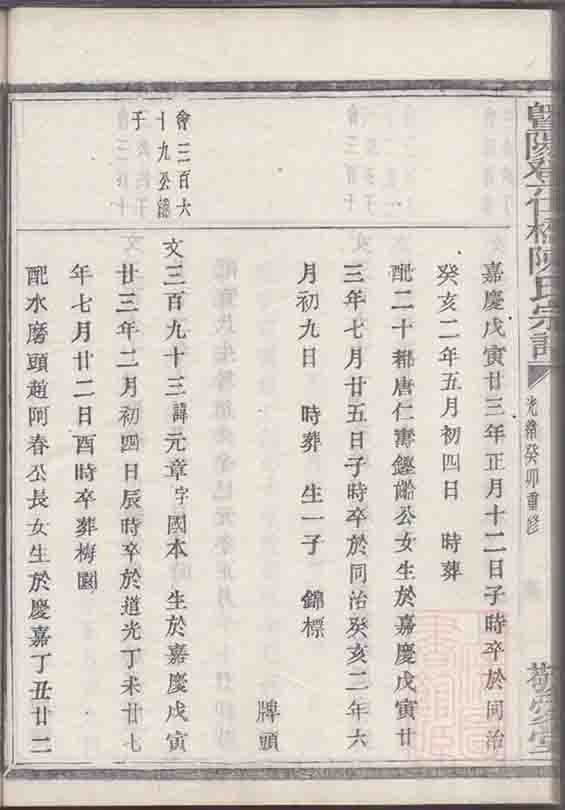 暨陽
橋陳氏宗譜
光緒癸卯重修
敬
嘉慶戊寅廿三年正月十二日子時卒於同治
癸亥二年五月初四日 時葬
配二十都唐仁
公女生於嘉慶戊寅廿
三年七月廿五日子時卒於同治癸亥二年六
月初九日 時葬 生一子 錦標
牌頭
會三百六
十九公
子
文三百九十三諱元章字國本 生於嘉慶戊寅
廿三年二月初四日辰時卒於道光丁未廿七
年七月廿二日酉時卒葬梅園
配水磨頭趙阿春公長女生於慶嘉丁丑廿二